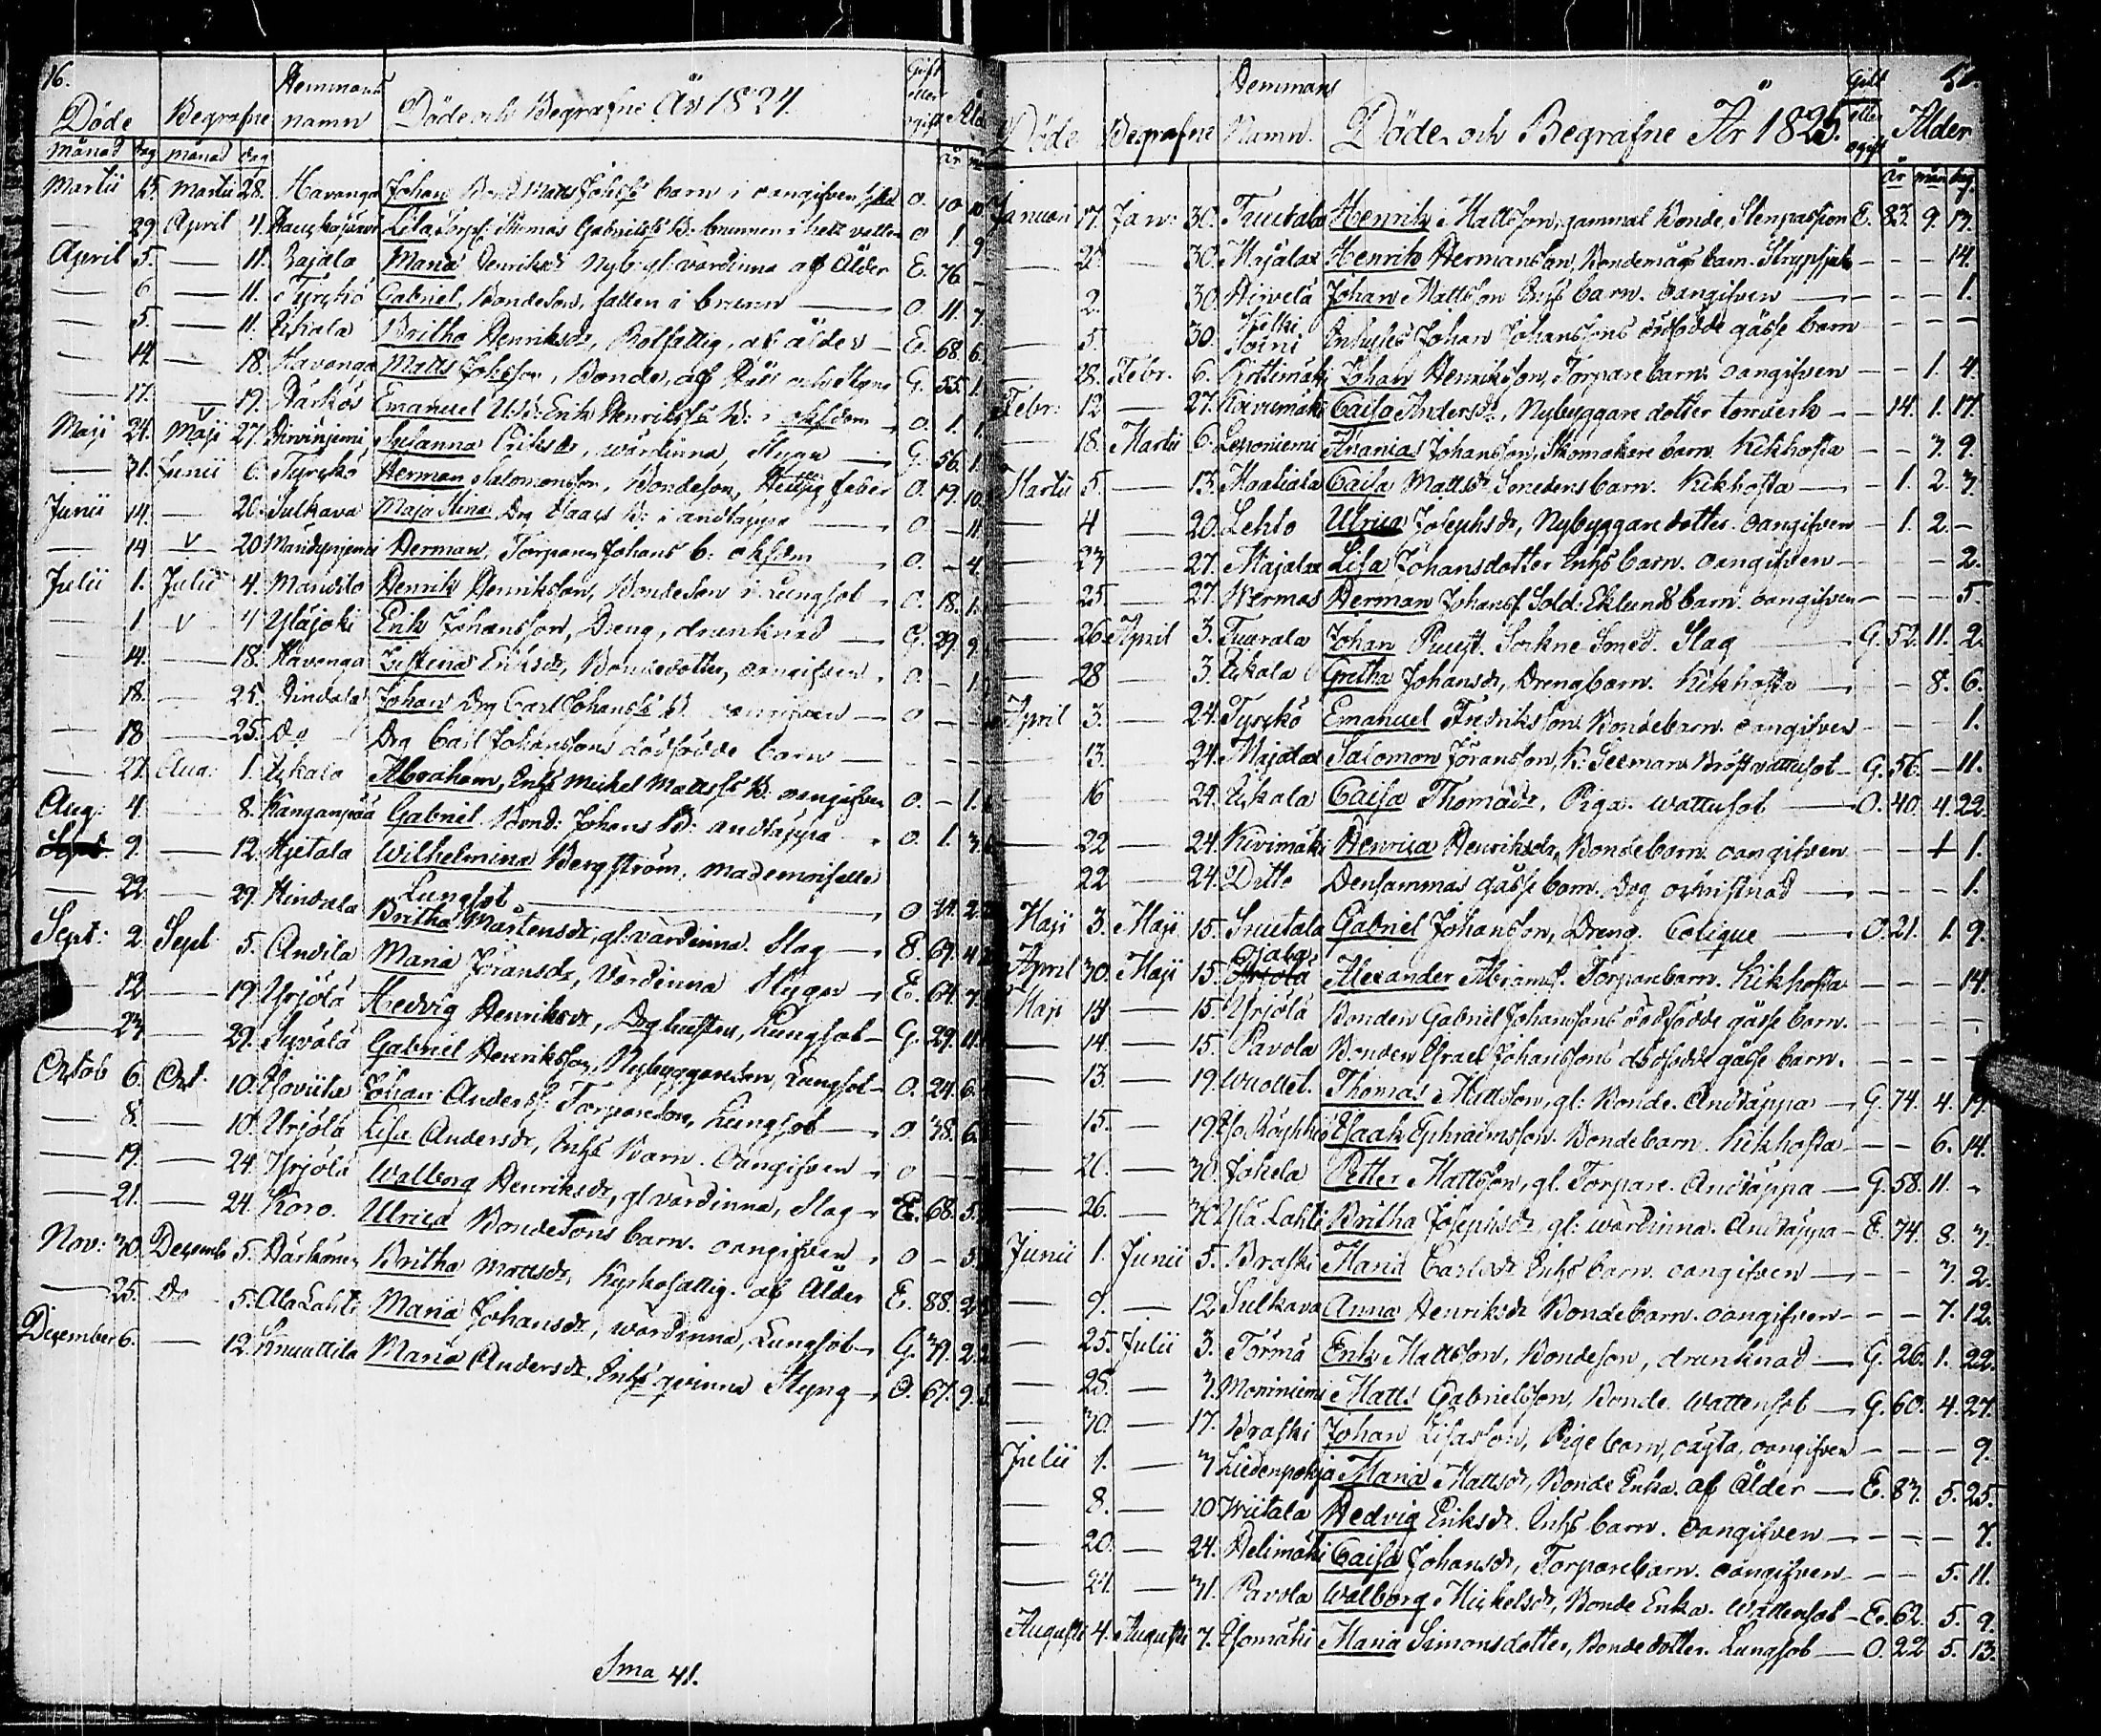 16.
Hemmans Gift
Döde Begrafne namn Döde och Begrafne År 1824. eller ogift Ålder
månad dag månad dag år
Martii 15. Martii 28. Havanga Johan Bond Matts Johss barn i oangifven sjkd O. 10
— 29 April 4. Lisa Torp: Thomas Gabrielss B: brunnen i hett vatten O 1 9
April 5. — 11. Rajala Maria Henriksdr Nyb: gl: värdinna af Ålder E. 76 –
— 6 — 11. Tyrckö Gabriel, Bondeson, fallen i brunn — O 11. 7
— 5. — 11. Uckola Britha Henriksdr, Rotfattig, af ålder — E. 68. 6.
— 14. — 18. Havanga Matts Johsson, Bonde, af Håll och Styng G. 55. 1.
— 17. — 19. Härkös Emanuel Erik Henrikss B: i okf:dom O. 1.
Maji 24. Maji 27. Hirvinjemi Susanna Eriksdr, wärdinna, Styng — G. 56. 1.
— 31. Junii 6. Tyrckö Herman Salomonsson, Bondeson, Hettsig feber O. 19. 10
Junii 14. — 20. Sulkava Maja Stina Drg Isaacs B: i andtäppa — O – 11
— 14 — 20 Herman, Torparen Johans b: okfdm O. – 4.
Julii 1. Julii 4. Mandila Henrik Henriksson, Bondeson i Lungsot O. 18. 1.
— 1 v 4 Yläjoki Erik Johansson, Dreng, drunknad — G. 29. 9
— 14. — 18. Havanga Eriksdr, Bondedotter, oangifven O – 1.
— 18. — 25. Hindala Johan Drg Carl Johanss B. oangifven — O – –
— 18 — 25. Do Drg Carl Johanssons dödfödde barn — – – –
— 27. Aug: 1. Uckola Abraham, Enhs Michel Matts B: oangifven O. – 1.
Aug: 4. 8. Kanganpää Gabriel Bond: Johans B: andtäppa O. 1. 3
9. — 12. Hjetala Wilhelmina Bergström, mademoiselle
Lungsot — O 24. 2.
— 22. — 29. Hindala Britha Mårtensdr, gl: värdinna. Slag — E. 69. 4
Sept: 2. Sept 5. Andila Maria Jöransdr, Värdinna Styger — E. 64. 7
— 12 — 19. Yrjölä Hedvig Henriksdr, Drg hustru, Lungsot — G. 29. 11
— 23 — 29. Syvälä Gabriel Henriksson, Nybyggareson, Lungsot O. 24. 6.
Octob 6. Oct. 10. Isoviita Johan Anderss: Torpareson, Lungsot — O. 38. 6.
— 8. — 10. Yrjölä Lisa Andersdr, Enhs Barn. Oangifven — O – –
— 19. — 24. Yrjölä Walborg Henriksdr, gl värdinna, Slag — E. 68. 5.
— 21. — 24. Koro. Ulrica Bondesons barn. oangifven — O – 3
Nov: 30. Decemb 5. Härkönen Britha Mattsdr, Kyrkofattig. af Ålder E. 88. 2
— 25. Do 5. Ala Lahti Maria Johansdr, wärdinna, Lungsot — G. 39. 2.
December 6. — 12. Knuuttila Maria Andersdr. Enhs qvinna Styng — O. 67. 9.
Sma 41.
Hemmans Gift 50.
Döde Begrafne Namn. Döde och Begrafne År 1825. eller ogift Ålder
år mån dag.
Januari 17. Janv: 30. Tuutala Henrik Mattsson, gammal Bonde, Stenpassion E. 83. 9. 17.
— 30. Majalax Henrik Hermansson, Bondemågs barn. Strupsjuk — – – 14.
2. 30. Hirvelä Johan Mattsson Enhs barn. oangifven — – – 1.
— 5 30. Koski Joini Enhyses Johan Johanssons dödfödde gåsse barn – – –
— 28. Febr. 6. Johan Henriksson, Torpare barn oangifven — – 1. 4.
Febr: 12 — 27. Koivumäki Caisa Andersdr, Nybyggare dotter torrverk — 14. 1. 17.
— 18. Martii 6. Leponiemi Ananias Johansson, Skomakare barn. Kikhosta – – 7. 9.
Martii 5. — 13. Haaliala Caisa Mattsdr Smedens barn. Kikhosta — 1. 2. 3.
— 4 20. Lehto Ulrica Josephsdr, Nybyggare dotter. oangifven – 1. 2. –
— 23 27. Majalax Lisa Johansdotter Enhs barn. oangifven — – – 2.
— 25. 27. Wermas Herman Johanss. Sold: Eklunds barn. oangifven — – – 5.
— 26. April 3. Tuurala Johan Puust. Sockne Smed. Slag — G. 52. 11. 2.
— 28 — 3. Uckola Gretha Johansdr, Drengbarn. Kikhosta — – 8. 6.
April 3. — 24. Tyrckö Emanuel Fredriksson Bondebarn. oangifven – – 1.
13. 24. Majalax Salomon Jöransson, K: Seeman Bröstvattusot — G. 56. – 11.
— 16 — 24. Uckola Caisa Thomasdr, Piga. wattusot — O. 40. 4. 22.
— 22 — 24. Kivimäki Henrica Henriksdr, Bondebarn. oangifven – – 1.
— 22 — 24. Ditto Densammas gåsse barn. Dog ochristnad — – – 1.
Maji 3. Maji 15. Snutala Gabriel Johansson, Dreng. Colique — O. 21. 1. 9.
April 30. Maji 15. Ojala Alexander Abrams. Torparebarn. Kikhosta – – 14.
Maji 14 — 15. Yrjölä Bonden Gabriel Johanssons dödfödde gåsse barn. – – –
— 14. — 15. Pavola Bonden Israel Johanssons dödfödde gåsse barn. – – –
— 13. — 19. Wuollet. Thomas Mattsson, gl: Bonde. Andtäppa — G. 74. 4. 19.
— 15. — 19. Iso Röyhkiö Isaak Ephraimsson Bondebarn. Kikhosta — – 6. 14.
— 21. — 30. Johela Petter Mattsson, gl. Torpare. Andtäppa — G. 58. 11. –
— 26. — 30. Ylä Lahti Britha Josephsdr, gl: wärdinna. Andtäppa — E. 74. 8. 3.
Junii 1. Junii 5. Braski Maria Carlsdr Enhs barn. oangifven — – 7. 2.
— 9. — 12. Sulkava Anna Henriksdr Bondebarn. oangifven — – 7. 12.
— 25. Julii 3. Törmä Erik Mattsson, Bondeson, drunknad — G. 26. 1. 22.
— 28. — 3. Moriniemi Matts Gabrielsson, Bonde. Wattensot — G. 60. 4. 27.
— 30. — 17. Braski Johan Lisasson, Pige barn, oägta, oangifven – – – 9.
Julii 1. — 3 Liedenpohja Maria Mattsdr, Bonde Enka. af Ålder — E. 87. 5. 25.
— 8. — 10 Wiitala Hedvig Eriksdr. Enhs barn. oangifven — – – 7.
— 20. — 24. Helimäki Caisa Johansdr, Torparebarn. oangifven — – 5. 11.
— 24. — 31. Pavola Walborg Michelsdr, Bonde Enka. Wattensot — E. 62. 5. 9.
Augusti 4. Augusti 7. Isomäki Maria Simonsdotter, Bondedotter. Lungsot — O. 22 5. 13.